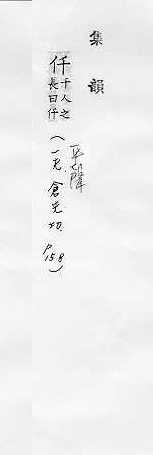 集韻
仟千人之長曰仟(一先.倉先切.P.158)
平聲